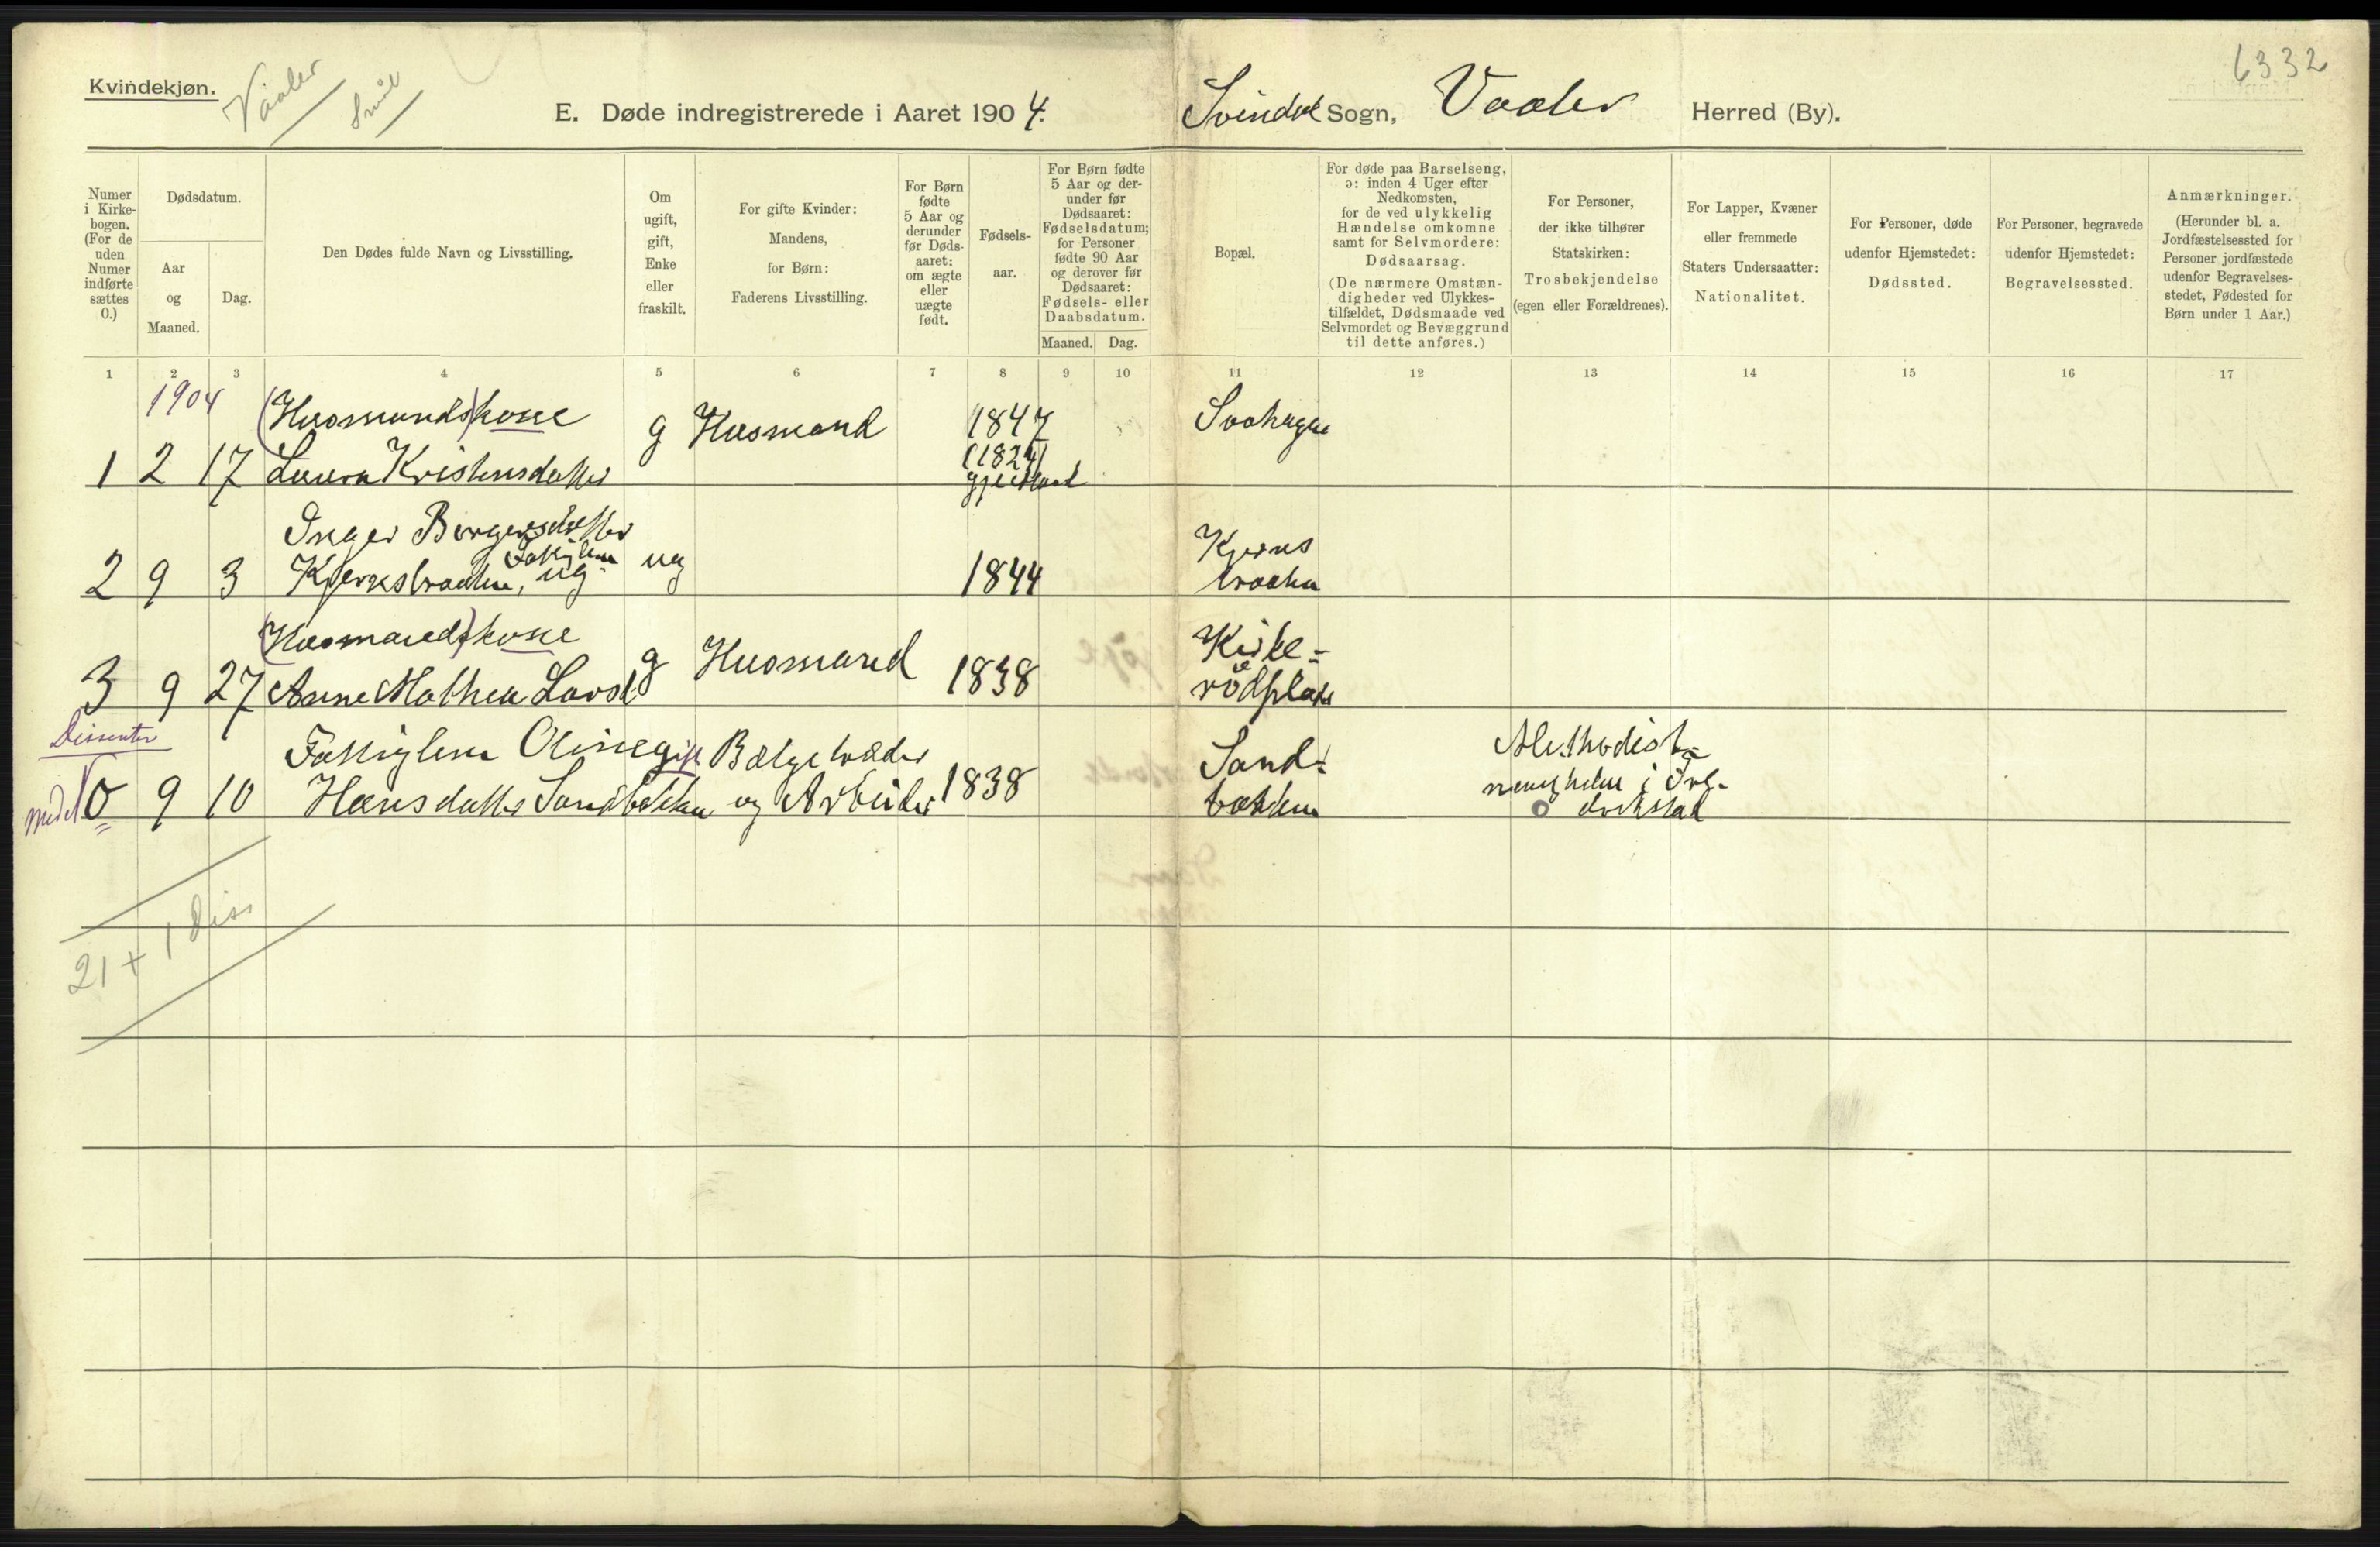 Kvindekjøn.
Vaaler
Smål
E. Døde indregistrerede i Aaret 1904. Svindal Sogn, Vaaler Herred (By).
6332
Numer i Kirke-bogen. (For de uden Numer indførte sættes 0.)
Dødsdatum.
Aar og Maaned.
Dag.
Den Dødes fulde Navn og Livsstilling.
Om ugift, gift, Enke eller fraskilt.
For gifte Kvinder: Mandens, for Børn: Faderens Livsstilling.
For Børn fødte 5 Aar og derunder før Døds-aaret: om ægte eller uægte født.
Fødsels-aar.
For Børn fødte 5 Aar og der-under før Dødsaaret: Fødselsdatum; for Personer fødte 90 Aar og derover før Dødsaaret: Fødsels- eller Daabsdatum.
Maaned. Dag.
Bopæl.
For døde paa Barselseng, ɔ: inden 4 Uger efter Nedkomsten, for de ved ulykkelig Hændelse omkomne samt for Selvmordere: Dødsaarsag.
(De nærmere Omstæn-digheder ved Ulykkes-tilfældet, Dødsmaade ved Selvmordet og Bevæggrund til dette anføres.)
For Personer, der ikke tilhører Statskirken: Trosbekjendelse (egen eller Forældrenes).
For Lapper, Kvæner eller fremmede Staters Undersaatter: Nationalitet.
For Personer, døde udenfor Hjemstedet: Dødssted.
For Personer, begravede udenfor Hjemstedet: Begravelsessted.
Anmærkninger. (Herunder bl. a. Jordfæstelsessted for Personer jordfæstede udenfor Begravelses-stedet, Fødested for Børn under 1 Aar.)
1 2 3 4 5 6 7 8 9 10 11 12 13 14 15 16 17
1904 (Husmands)kone g Husmand 1847 Svahagen
1 2 17 Laura Kristensdatter (1824)
Inger Borgersdatter Kjerns
Fattiglem
2 9 3 Kjernsbraaten, ug ug 1844 braaten
(Husmands)kone g Husmand Kirke-
3 9 27 Anne Mathea Larsd 1838 rødplads
Dissenter
Fattiglem Oline gift Bælgetræder Sand- Methodist-
0 9 10 Hansdatter Sandbakken og Arbeider 1838 bakken menigheden i Fre-
drikstad
21 + 1 Diss